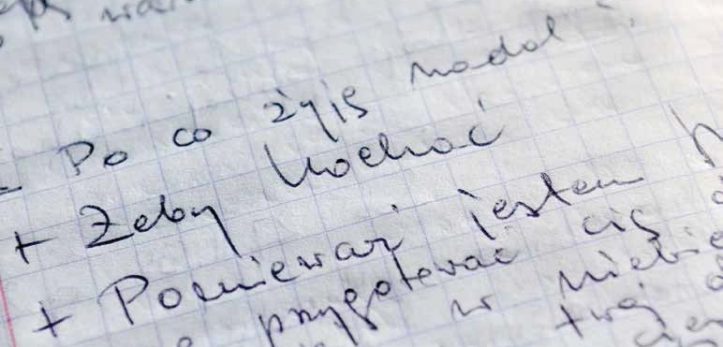 - Po co żyjs nadal
+ Żeby kochać
+ Ponieważ jestem
przygotować cię
w niebie
twój